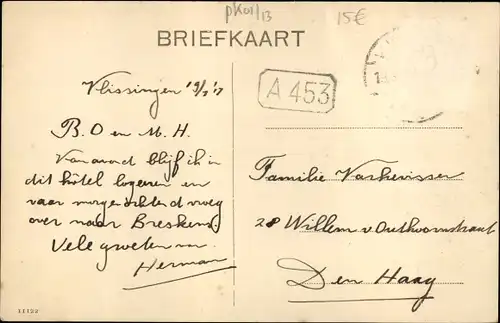 pk01/13
15€
BRIEFKAART
A 453
Vlissingen 19/7 '17
B. O en M. H.
Vanavond blijf ik in
dit hôtel logeeren en
vaar morgenochtend vroeg
over naar Breskens.
Vele groeten van
Herman
Familie Varkevisser
28 Willem v. Outhoornstraat
Den Haag
11122